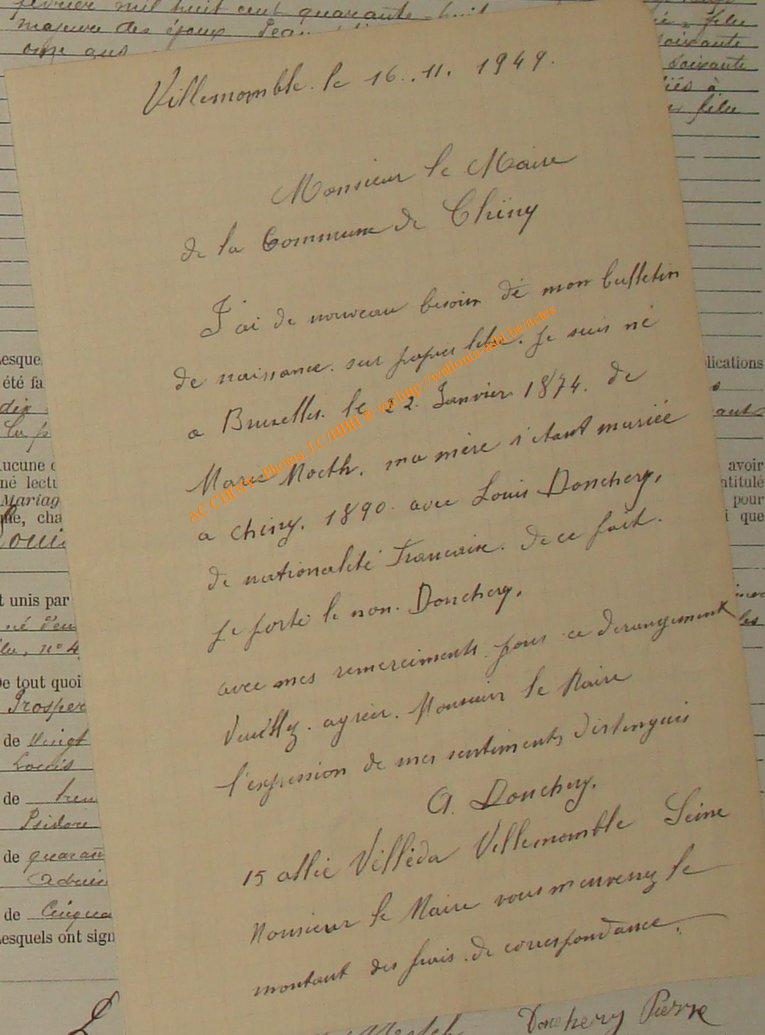 février mil huit cent quarante-huit
majeure des époux Jean
onze ans
fille
soixante
soixante
fille
Villemomble. le 16..11. 1949.
Monsieur le Maire
de la Commune de Chiny
J'ai de nouveau besoin de mon bulletin
de naissance. sur papier libre. je suis né
a Bruxelles. le 22. Janvier 1874. de
Marie Moeth. ma mère s'étant mariée
a Chiny. 1890. avec Louis Donchery,
de nationalité Francaise. de ce fait.
je porte le nom. Donchery.
avec mes remerciments. pour ce derangement
Veuillez. agréer. Monsieur le Maire
l'expression de mes sentiments distingués
A. Donchery.
15 allée Villéda Villemomble Seine
Monsieur le Maire vous m'enverrez le
montant des frais. de correspondance.
été fa
dix
né lectu
Mariag
Louis
t unis par
né
nº 4
De tout quoi
Prosper
de vingt
Louis
de
Isidore
de quaran
de Cinqua
esquels ont sign
lications
avoir
ntitulé
pour
i que
les
Donchery Pierre